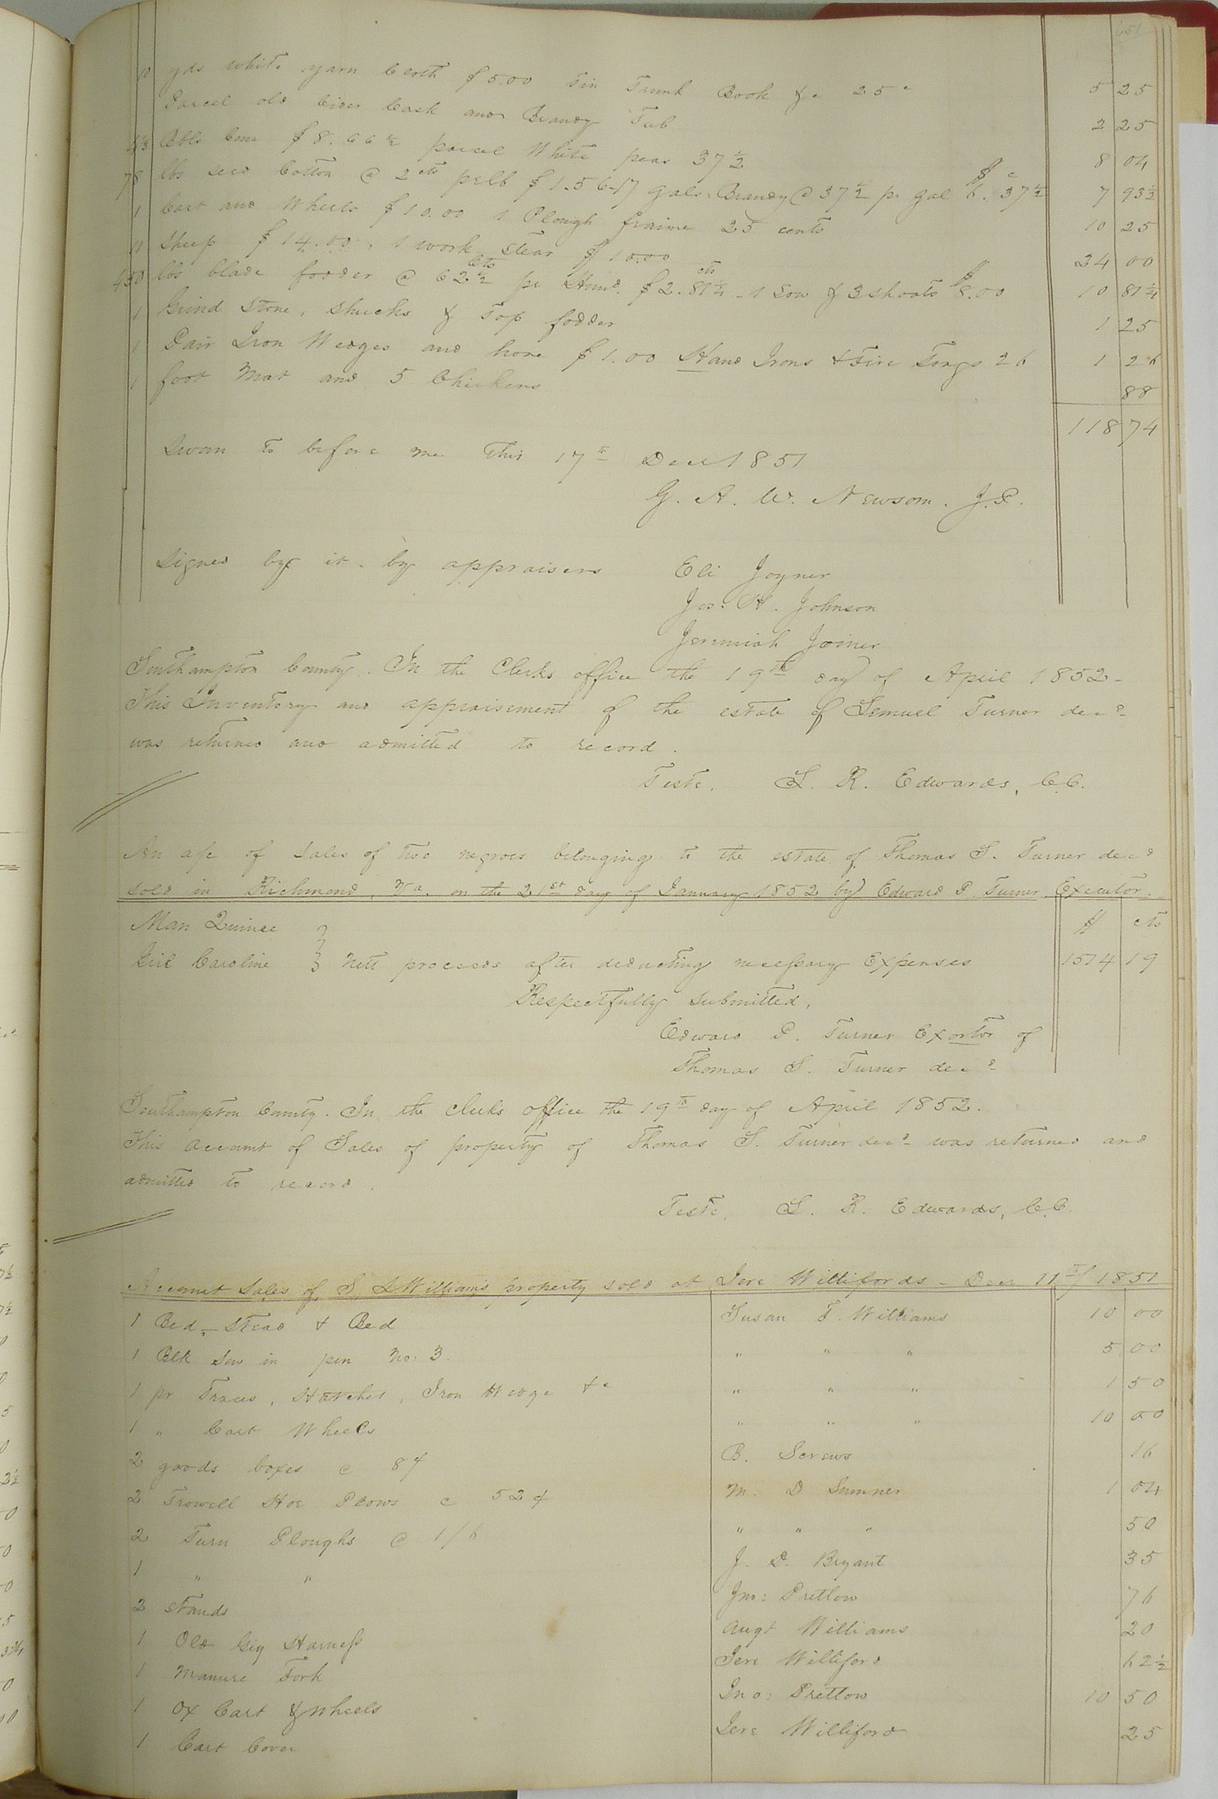 10 yds white yarn Cloth $5.00 Tin Trunk Book &c 25c 5 25
Parcel old Cider Cask and Brandy Tub 2 25
Bbls Corn $8.66 2/3 parcel White peas 37 1/2 8 04
78 lbs seed Cotton @ 2 cts pr lb $1.56 - 17 gals. Brandy @ 37 1/2 pr gal $6.37 1/2 7 93 1/2
1 Cart and Wheels $10.00 1 Plough fraime 25 cents 10 25
Sheep $14.00. 1 work stear $10.00 24 00
450 lbs blade fodder @ 62 1/2 cts pr Hund. $2.81 1/4 - 1 Sow & 3 shoats $8.00 10 81 1/4
1 Grind Stone, Shucks & Top fodder 1 25
1 Pair Iron Wedges and hone $1.00 Hand Irons & Fire Tongs 26 1 26
1 foot Mat and 5 Chickens 88
118 74
Sworn to before me this 17th Dec 1851
G. A. W. Newsom. J.P.
Signed by it. by appraisers Eli Joyner
Jos: H. Johnson
Jeremiah Joiner
Southampton County. In the Clerks office the 19th day of April 1852 -
This Inventory and appraisement of the estate of Lemuel Turner decd
was returned and admitted to record.
Teste. L. R. Edwards, C.C.
An a/c of Sales of two negroes belonging to the estate of Thomas S. Turner decd
sold in Richmond Va. on the 21st day of January 1852 by Edward P. Turner Executor.
Man Quince $ cts
Girl Caroline } Nett proceeds after deducting necessary Expenses 1574 19
Respectfully submitted,
Edward P. Turner Exortor of
Thomas S. Turner decd
Southampton County. In the clerks office the 19th day of April 1852.
This account of Sales of property of Thomas S. Turner decd was returned and
admitted to record.
Teste. L. R. Edwards, C.C.
Account Sales of S. Williams property sold at Jere Willifords - Decr 11th/1851
1 Bed-Stead & Bed Susan F. Williams 10 00
1 Blk Sow in pen No. 3. " " " 5 00
1 pr Traces, Hatchet, Iron Wedge &c " " " 1 50
1 " Cart Wheels " " " 10 00
2 goods boxes @ 8¢ B. Screws 16
2 Trowell Hoe Plows @ 52¢ M. D Sumner 1 04
2 Turn Ploughs @ 1/6 " " " 50
1 " " J. D. Bryant 35
2 stands Jno: Pretlow 76
1 Old Gig Harness Augt Williams 20
1 Manure Fork Jere Williford 62 1/2
1 Ox Cart & Wheels Jno: Pretlow 10 50
1 Cart Cover Jere Williford 25